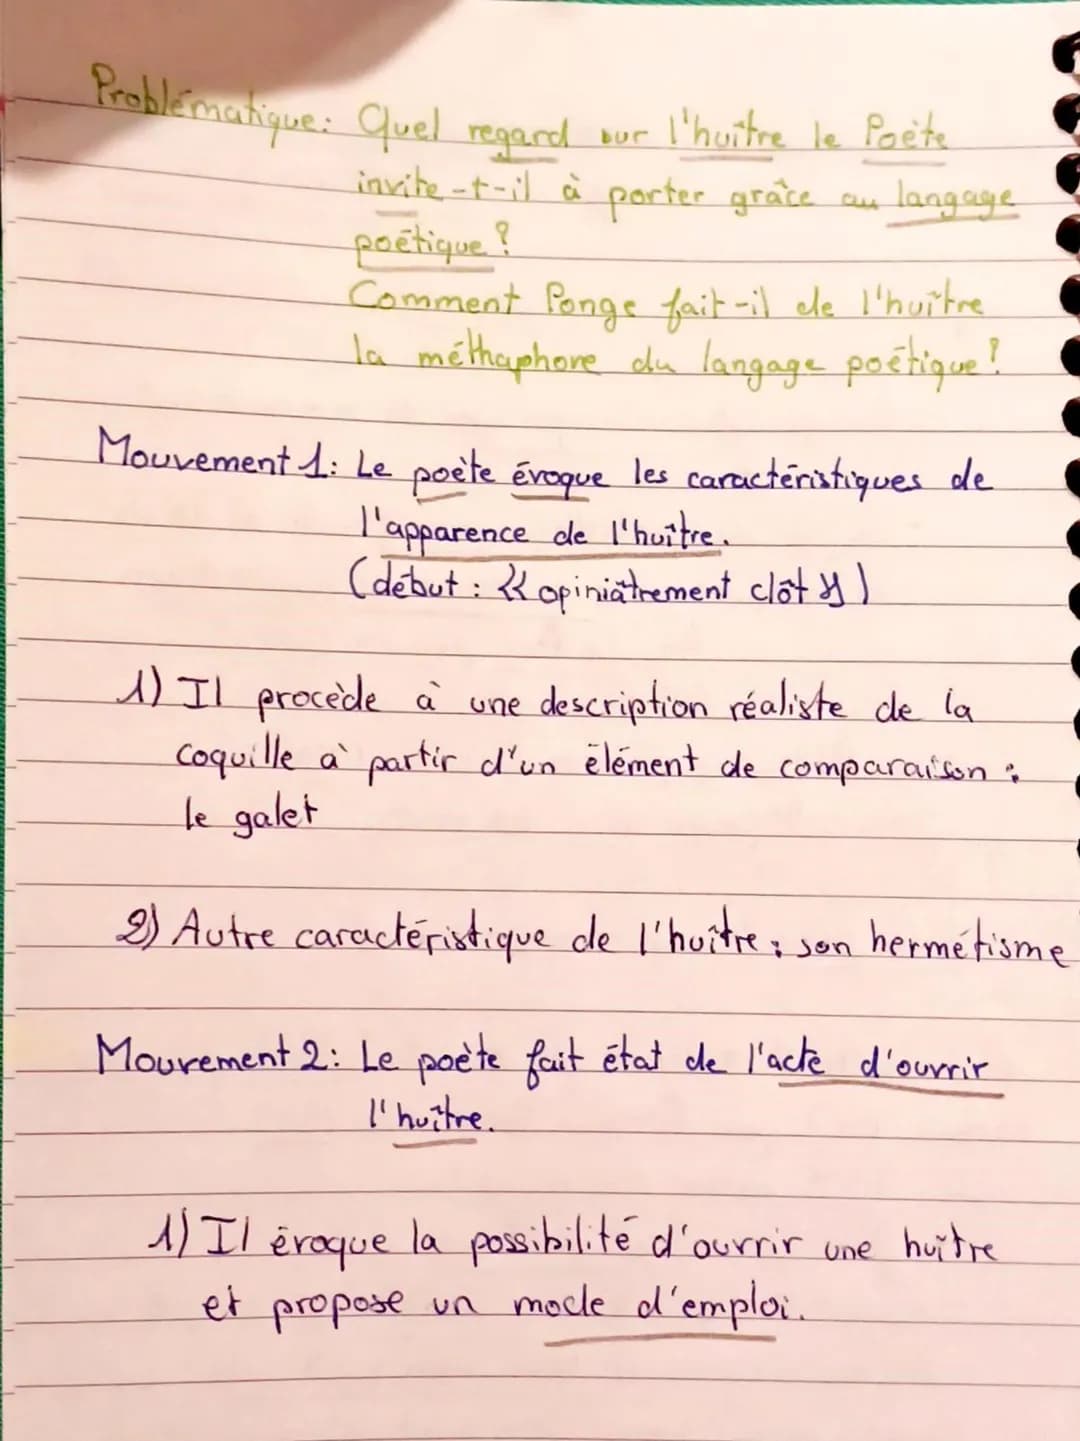 Problématique: Quel regard sur l'huître le Poète
invite-t-il à porter grâce au langage
poétique?
Comment Ponge fait-il de l'huître
la méthaphore du langage poétique?
Mouvement 1: Le poète évoque les caractéristiques de
l'apparence de l'huître.
(début : « opiniâtrement clôt »)
1) Il procède à une description réaliste de la
coquille à partir d'un élément de comparaison :
le galet
2) Autre caractéristique de l'huître : son hermétisme
Mouvement 2: Le poète fait état de l'acte d'ouvrir
l'huître.
1) Il évoque la possibilité d'ouvrir une huître
et propose un mode d'emploi.